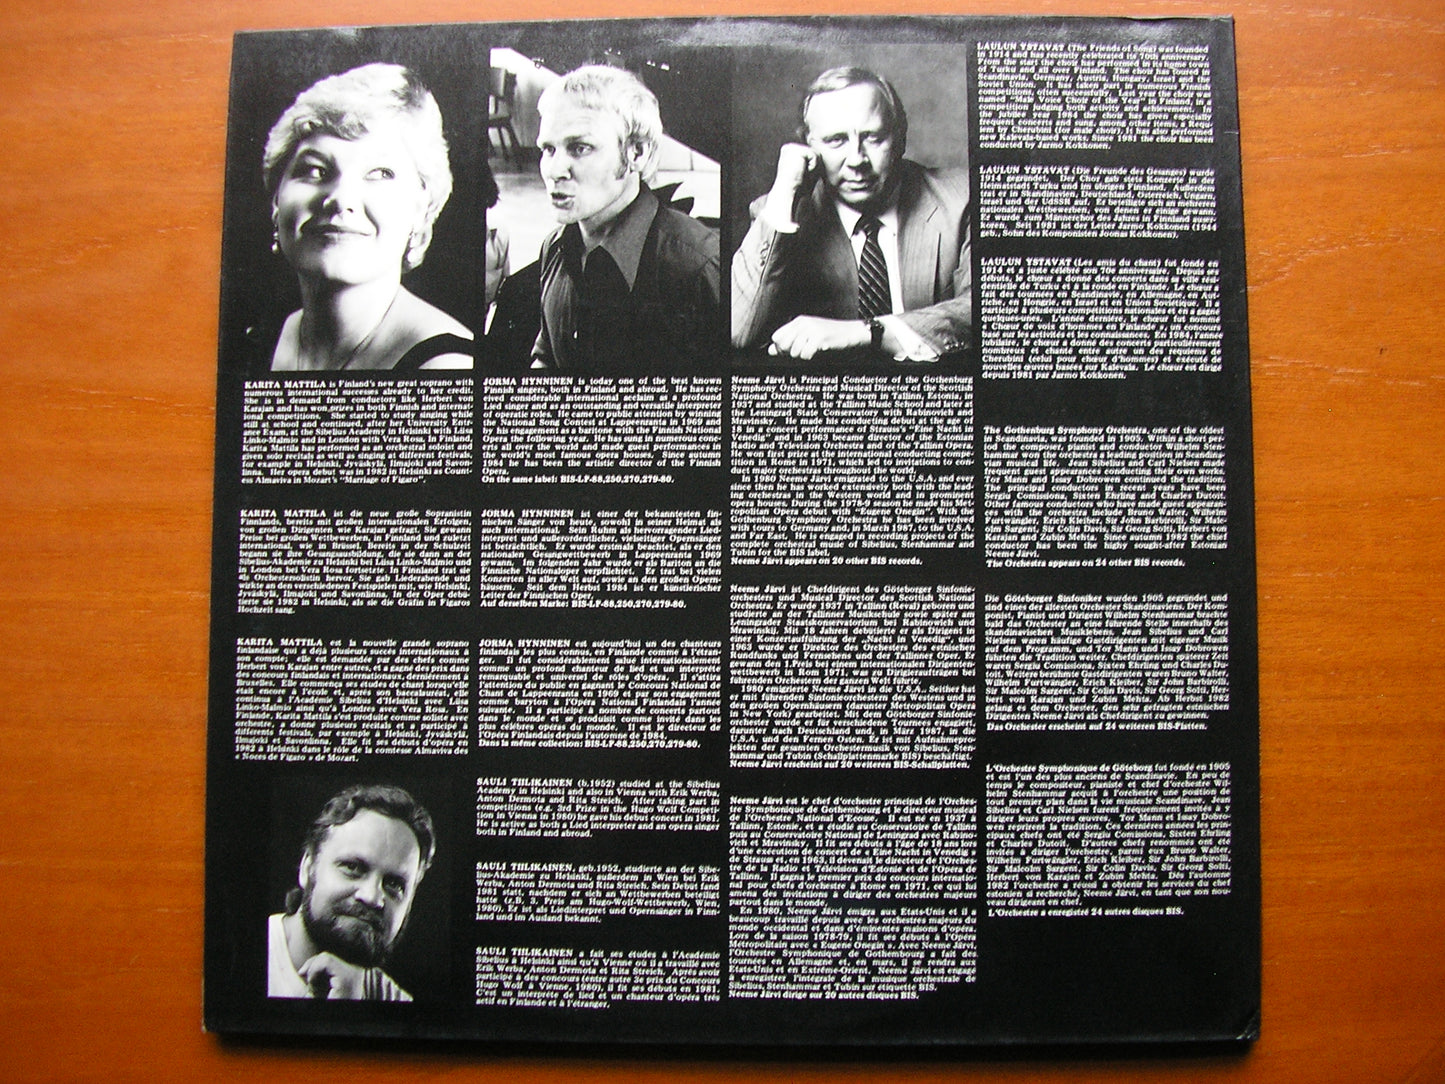 KARITA MATTILA is Finland's new great soprano with
numerous international successes already to her credit.
She is in demand from conductors like Herbert von
Karajan and has won prizes in both Finnish and internat-
ional competitions. She started to study singing while
still at school and continued, after her University Entr-
ance Exam, at the Sibelius Academy in Helsinki with Liisa
Linko-Malmio and in London with Vera Rosa. In Finland,
Karita Mattila has performed as an orchestral soloist and
given solo recitals as well as singing at different festivals,
for example in Helsinki, Jyväskylä, Ilmajoki and Savon-
linna. Her opera debut was in 1982 in Helsinki as Count-
ess Almaviva in Mozart's "Marriage of Figaro".
KARITA MATTILA ist die neue große Sopranistin
Finnlands, bereits mit großen internationalen Erfolgen,
von großen Dirigenten wie Karajan gefragt. Sie gewann
Preise bei großen Wettbewerben, in Finnland und zuletzt
international, wie in Brüssel. Bereits in der Schulzeit
begann sie ihre Gesangausbildung, die sie dann an der
Sibelius-Akademie zu Helsinki bei Liisa Linko-Malmio und
in London bei Vera Rosa fortsetzte. In Finnland trat sie
als Orchestersolistin hervor. Sie gab Liederabende und
wirkte an den verschiedenen Festspielen mit, wie Helsinki,
Jyväskylä, Ilmajoki und Savonlinna. In der Oper debü-
tierte sie 1982 in Helsinki, als sie die Gräfin in Figaros
Hochzeit sang.
KARITA MATTILA est la nouvelle grande soprano
finlandaise qui a déjà plusieurs succès internationaux à
son compte; elle est demandée par des chefs comme
Herbert von Karajan entre autres, et a gagné des prix dans
des concours finlandais et internationaux, dernièrement à
Bruxelles. Elle commença ses études de chant lorsqu'elle
était encore à l'école et, après son baccalauréat, elle
continua à l'Académie Sibelius d'Helsinki avec Liisa
Linko-Malmio ainsi qu'à Londres avec Vera Rosa. En
Finlande, Karita Mattila s'est produite comme soliste avec
orchestre, a donné plusieurs récitals et a participé à
différents festivals, par exemple à Helsinki, Jyväskylä,
Ilmajoki et Savonlinna. Elle fit ses débuts d'opéra en
1982 à Helsinki dans le rôle de la comtesse Almaviva des
« Noces de Figaro » de Mozart.
JORMA HYNNINEN is today one of the best known
Finnish singers, both in Finland and abroad. He has rec-
eived considerable international acclaim as a profound
Lied singer and as an outstanding and versatile interpreter
of operatic roles. He came to public attention by winning
the National Song Contest at Lappeenranta in 1969 and
by his engagement as a baritone with the Finnish National
Opera the following year. He has sung in numerous conc-
erts all over the world and made guest performances in
the world's most famous opera houses. Since autumn
1984 he has been the artistic director of the Finnish
Opera.
On the same label: BIS-LP-88,250,270,279-80.
JORMA HYNNINEN ist einer der bekanntesten fin-
nischen Sänger von heute, sowohl in seiner Heimat als
auch international. Sein Ruhm als hervorragender Lied-
interpret und außerordentlicher, vielseitiger Opernsänger
ist beträchtlich. Er wurde erstmals beachtet, als er den
nationalen Gesangwettbewerb in Lappeenranta 1969
gewann. Im folgenden Jahr wurde er als Bariton an die
Finnische Nationaloper verpflichtet. Er trat bei vielen
Konzerten in aller Welt auf, sowie an den großen Opern-
häusern. Seit dem Herbst 1984 ist er künstlerischer
Leiter der Finnischen Oper.
Auf derselben Marke: BIS-LP-88,250,270,279-80.
JORMA HYNNINEN est aujourd'hui un des chanteurs
finlandais les plus connus, en Finlande comme à l'étran-
ger. Il fut considérablement salué internationalement
comme un profond chanteur de lied et un interprète
remarquable et universel de rôles d'opéra. Il s'attira
l'attention du public en gagnant le Concours National de
Chant de Lappeenranta en 1969 et par son engagement
comme baryton à l'Opéra National Finlandais l'année
suivante. Il a participé à nombre de concerts partout
dans le monde et se produisit comme invité dans les
plus célèbres opéras du monde. Il est le directeur de
l'Opéra Finlandais depuis l'automne de 1984.
Dans la même collection: BIS-LP-88,250,270,279-80.
SAULI TIILIKAINEN (b.1952) studied at the Sibelius
Academy in Helsinki and also in Vienna with Erik Werba,
Anton Dermota and Rita Streich. After taking part in
competitions (e.g. 3rd Prize in the Hugo Wolf Competi-
tion in Vienna in 1980) he gave his debut concert in 1981.
He is active as both a Lied interpreter and an opera singer
both in Finland and abroad.
SAULI TIILIKAINEN, geb.1952, studierte an der Sibe-
lius-Akademie zu Helsinki, außerdem in Wien bei Erik
Werba, Anton Dermota und Rita Streich. Sein Debut fand
1981 statt, nachdem er sich an Wettbewerben beteiligt
hatte (z.B. 3. Preis am Hugo-Wolf-Wettbewerb, Wien,
1980). Er ist als Liedinterpret und Opernsänger in Finn-
land und im Ausland bekannt.
SAULI TIILIKAINEN a fait ses études à l'Académie
Sibelius à Helsinki ainsi qu'à Vienne où il a travaillé avec
Erik Werba, Anton Dermota et Rita Streich. Après avoir
participé à des concours (entre autre 3e prix du Concours
Hugo Wolf à Vienne, 1980), il fit ses débuts en 1981.
C'est un interprète de lied et un chanteur d'opéra très
actif en Finlande et à l'étranger.
Neeme Järvi is Principal Conductor of the Gothenburg
Symphony Orchestra and Musical Director of the Scottish
National Orchestra. He was born in Tallinn, Estonia, in
1937 and studied at the Tallinn Music School and later at
the Leningrad State Conservatory with Rabinovich and
Mravinsky. He made his conducting debut at the age of
18 in a concert performance of Strauss's "Eine Nacht in
Venedig" and in 1963 became director of the Estonian
Radio and Television Orchestra and of the Tallinn Opera.
He won first prize at the international conducting compe-
tition in Rome in 1971, which led to invitations to con-
duct major orchestras throughout the world.
In 1980 Neeme Järvi emigrated to the U.S.A. and ever
since then he has worked extensively both with the lead-
ing orchestras in the Western world and in prominent
opera houses. During the 1978-9 season he made his Met-
ropolitan Opera debut with "Eugene Onegin". With the
Gothenburg Symphony Orchestra he has been involved
with tours to Germany and, in March 1987, to the U.S.A.
and Far East. He is engaged in recording projects of the
complete orchestral music of Sibelius, Stenhammar and
Tubin for the BIS label.
Neeme Järvi appears on 20 other BIS records.
Neeme Järvi ist Chefdirigent des Göteborger Sinfonie-
orchesters und Musical Director des Scottish National
Orchestra. Er wurde 1937 in Tallinn (Reval) geboren und
studierte an der Tallinner Musikschule sowie später am
Leningrader Staatskonservatorium bei Rabinowich und
Mrawinskij. Mit 18 Jahren debütierte er als Dirigent in
einer Konzertaufführung der „Nacht in Venedig", und
1963 wurde er Direktor des Orchesters des estnischen
Rundfunks und Fernsehens und der Tallinner Oper. Er
gewann den 1.Preis bei einem internationalen Dirigenten-
wettbewerb in Rom 1971, was zu Dirigieraufträgen bei
führenden Orchestern der ganzen Welt führte.
1980 emigrierte Neeme Järvi in die U.S.A.. Seither hat
er mit führenden Sinfonieorchestern des Westens und in
den großen Opernhäusern (darunter Metropolitan Opera
in New York) gearbeitet. Mit dem Göteborger Sinfonie-
orchester wurde er für verschiedene Tournees engagiert,
darunter nach Deutschland und, im März 1987, in die
U.S.A. und den Fernen Osten. Er ist mit Aufnahmepro-
jekten der gesamten Orchestermusik von Sibelius, Sten-
hammar und Tubin (Schallplattenmarke BIS) beschäftigt.
Neeme Järvi erscheint auf 20 weiteren BIS-Schallplatten.
Neeme Järvi est le chef d'orchestre principal de l'Orches-
tre Symphonique de Gothembourg et le directeur musical
de l'Orchestre National d'Ecosse. Il est né en 1937 à
Tallinn, Estonie, et a étudié au Conservatoire de Tallinn
puis au Conservatoire National de Leningrad avec Rabino-
vich et Mravinsky. Il fit ses débuts à l'âge de 18 ans lors
d'une exécution de concert de « Eine Nacht in Venedig »
de Strauss et, en 1963, il devenait le directeur de l'Orches-
tre de la Radio et Télévision d'Estonie et de l'Opéra de
Tallinn. Il gagna le premier prix du concours internatio-
nal pour chefs d'orchestre à Rome en 1971, ce qui lui
amena des invitations à diriger des orchestres majeurs
partout dans le monde.
En 1980, Neeme Järvi émigra aux Etats-Unis et il a
beaucoup travaillé depuis avec les orchestres majeurs du
monde occidental et dans d'éminentes maisons d'opéra.
Lors de la saison 1978-79, il fit ses débuts à l'opéra
Métropolitain avec « Eugene Onegin ». Avec Neeme Järvi,
l'Orchestre Symphonique de Gothembourg a fait des
tournées en Allemagne et, en mars, il se rendra aux
Etats-Unis et en Extrême-Orient. Neeme Järvi est engagé
à enregistrer l'intégrale de la musique orchestrale de
Sibelius, Stenhammar et Tubin sur étiquette BIS.
Neeme Järvi dirige sur 20 autres disques BIS.
LAULUN YSTÄVÄT (The Friends of Song) was founded
in 1914 and has recently celebrated its 70th anniversary.
From the start the choir has performed in its home town
of Turku and all over Finland. The choir has toured in
Scandinavia, Germany, Austria, Hungary, Israel and the
Soviet Union. It has taken part in numerous Finnish
competitions, often successfully. Last year the choir was
named "Male Voice Choir of the Year" in Finland, in a
competition judging both activity and achievement. In
the jubilee year 1984 the choir has given especially
frequent concerts and sung, among other items, a Requ-
iem by Cherubini (for male choir). It has also performed
new Kalevala-based works. Since 1981 the choir has been
conducted by Jarmo Kokkonen.
LAULUN YSTÄVÄT (Die Freunde des Gesanges) wurde
1914 gegründet. Der Chor gab stets Konzerte in der
Heimatstadt Turku und im übrigen Finnland. Außerdem
trat er in Skandinavien, Deutschland, Österreich, Ungarn,
Israel und der UdSSR auf. Er beteiligte sich an mehreren
nationalen Wettbewerben, von denen er einige gewann.
Er wurde zum Männerchor des Jahres in Finnland auser-
koren. Seit 1981 ist der Leiter Jarmo Kokkonen (1944
geb., Sohn des Komponisten Joonas Kokkonen).
LAULUN YSTÄVÄT (Les amis du chant) fut fondé en
1914 et a juste célébré son 70e anniversaire. Depuis ses
débuts, le chœur a donné des concerts dans sa ville rési-
dentielle de Turku et à la ronde en Finlande. Le chœur a
fait des tournées en Scandinavie, en Allemagne, en Aut-
riche, en Hongrie, en Israel et en Union Soviétique. Il a
participé à plusieurs compétitions nationales et en a gagné
quelques-unes. L'année dernière, le chœur fut nommé
« Chœur de voix d'hommes en Finlande », un concours
basé sur les activités et les connaissances. En 1984, l'année
jubilaire, le chœur a donné des concerts particulièrement
nombreux et chanté entre autre un des requiems de
Cherubini (celui pour chœur d'hommes) et exécuté de
nouvelles œuvres basées sur Kalevala. Le chœur est dirigé
depuis 1981 par Jarmo Kokkonen.
The Gothenburg Symphony Orchestra, one of the oldest
in Scandinavia, was founded in 1905. Within a short per-
iod the composer, pianist and conductor Wilhelm Sten-
hammar won the orchestra a leading position in Scandina-
vian musical life. Jean Sibelius and Carl Nielsen made
frequent guest appearances conducting their own works.
Tor Mann and Issay Dobrowen continued the tradition.
The principal conductors in recent years have been
Sergiu Comissiona, Sixten Ehrling and Charles Dutoit.
Other famous conductors who have made guest appearan-
ces with the orchestra include Bruno Walter, Wilhelm
Furtwängler, Erich Kleiber, Sir John Barbirolli, Sir Mal-
colm Sargent, Sir Colin Davis, Sir Georg Solti, Herbert von
Karajan and Zubin Mehta. Since autumn 1982 the chief
conductor has been the highy sought-after Estonian
Neeme Järvi.
The Orchestra appears on 24 other BIS records.
Die Göteborger Sinfoniker wurden 1905 gegründet und
sind eines der ältesten Orchester Skandinaviens. Der Kom-
ponist, Pianist und Dirigent Wilhelm Stenhammar brachte
bald das Orchester an eine führende Stelle innerhalb des
skandinavischen Musiklebens. Jean Sibelius und Carl
Nielsen waren häufige Gastdirigenten mit eigener Musik
auf dem Programm, und Tor Mann und Issay Dobrowen
führten die Tradition weiter. Chefdirigenten späterer Zeit
waren Sergiu Comissiona, Sixten Ehrling und Charles Du-
toit. Weitere berühmte Gastdirigenten waren Bruno Walter,
Wilhelm Furtwängler, Erich Kleiber, Sir John Barbirolli,
Sir Malcolm Sargent, Sir Colin Davis, Sir Georg Solti, Herb-
ert von Karajan und Zubin Mehta. Ab Herbst 1982
gelang es dem Orchester, den sehr gefragten estnischen
Dirigenten Neeme Järvi als Chefdirigent zu gewinnen.
Das Orchester erscheint auf 24 weiteren BIS-Platten.
L'Orchestre Symphonique de Göteborg fut fondé en 1905
et est l'un des plus anciens de Scandinavie. En peu de
temps le compositeur, pianiste et chef d'orchestre Wil-
helm Stenhammar acquit à l'orchestre une position de
tout premier plan dans la vie musicale Scandinave. Jean
Sibelius et Carl Nielsen furent fréquemment invités à y
diriger leurs propres œuvres. Tor Mann et Issay Dobro-
wen reprirent la tradition. Ces dernières années les prin-
cipaux chefs ont été Sergiu Comissiona, Sixten Ehrling
et Charles Dutoit. D'autres chefs renommés ont été
invités à diriger l'orchestre, parmi eux Bruno Walter,
Wilhelm Furtwängler, Erich Kleiber, Sir John Barbirolli,
Sir Malcolm Sargent, Sir Colin Davis, Sir Georg Solti,
Herbert von Karajan et Zubin Mehta. Dès l'automne
1982 l'orchestre a réussi à obtenir les services du chef
estonien si recherché, Neeme Järvi, en tant que son nou-
veau dirigeant en chef.
L'Orchestre a enregistré 24 autres disques BIS.